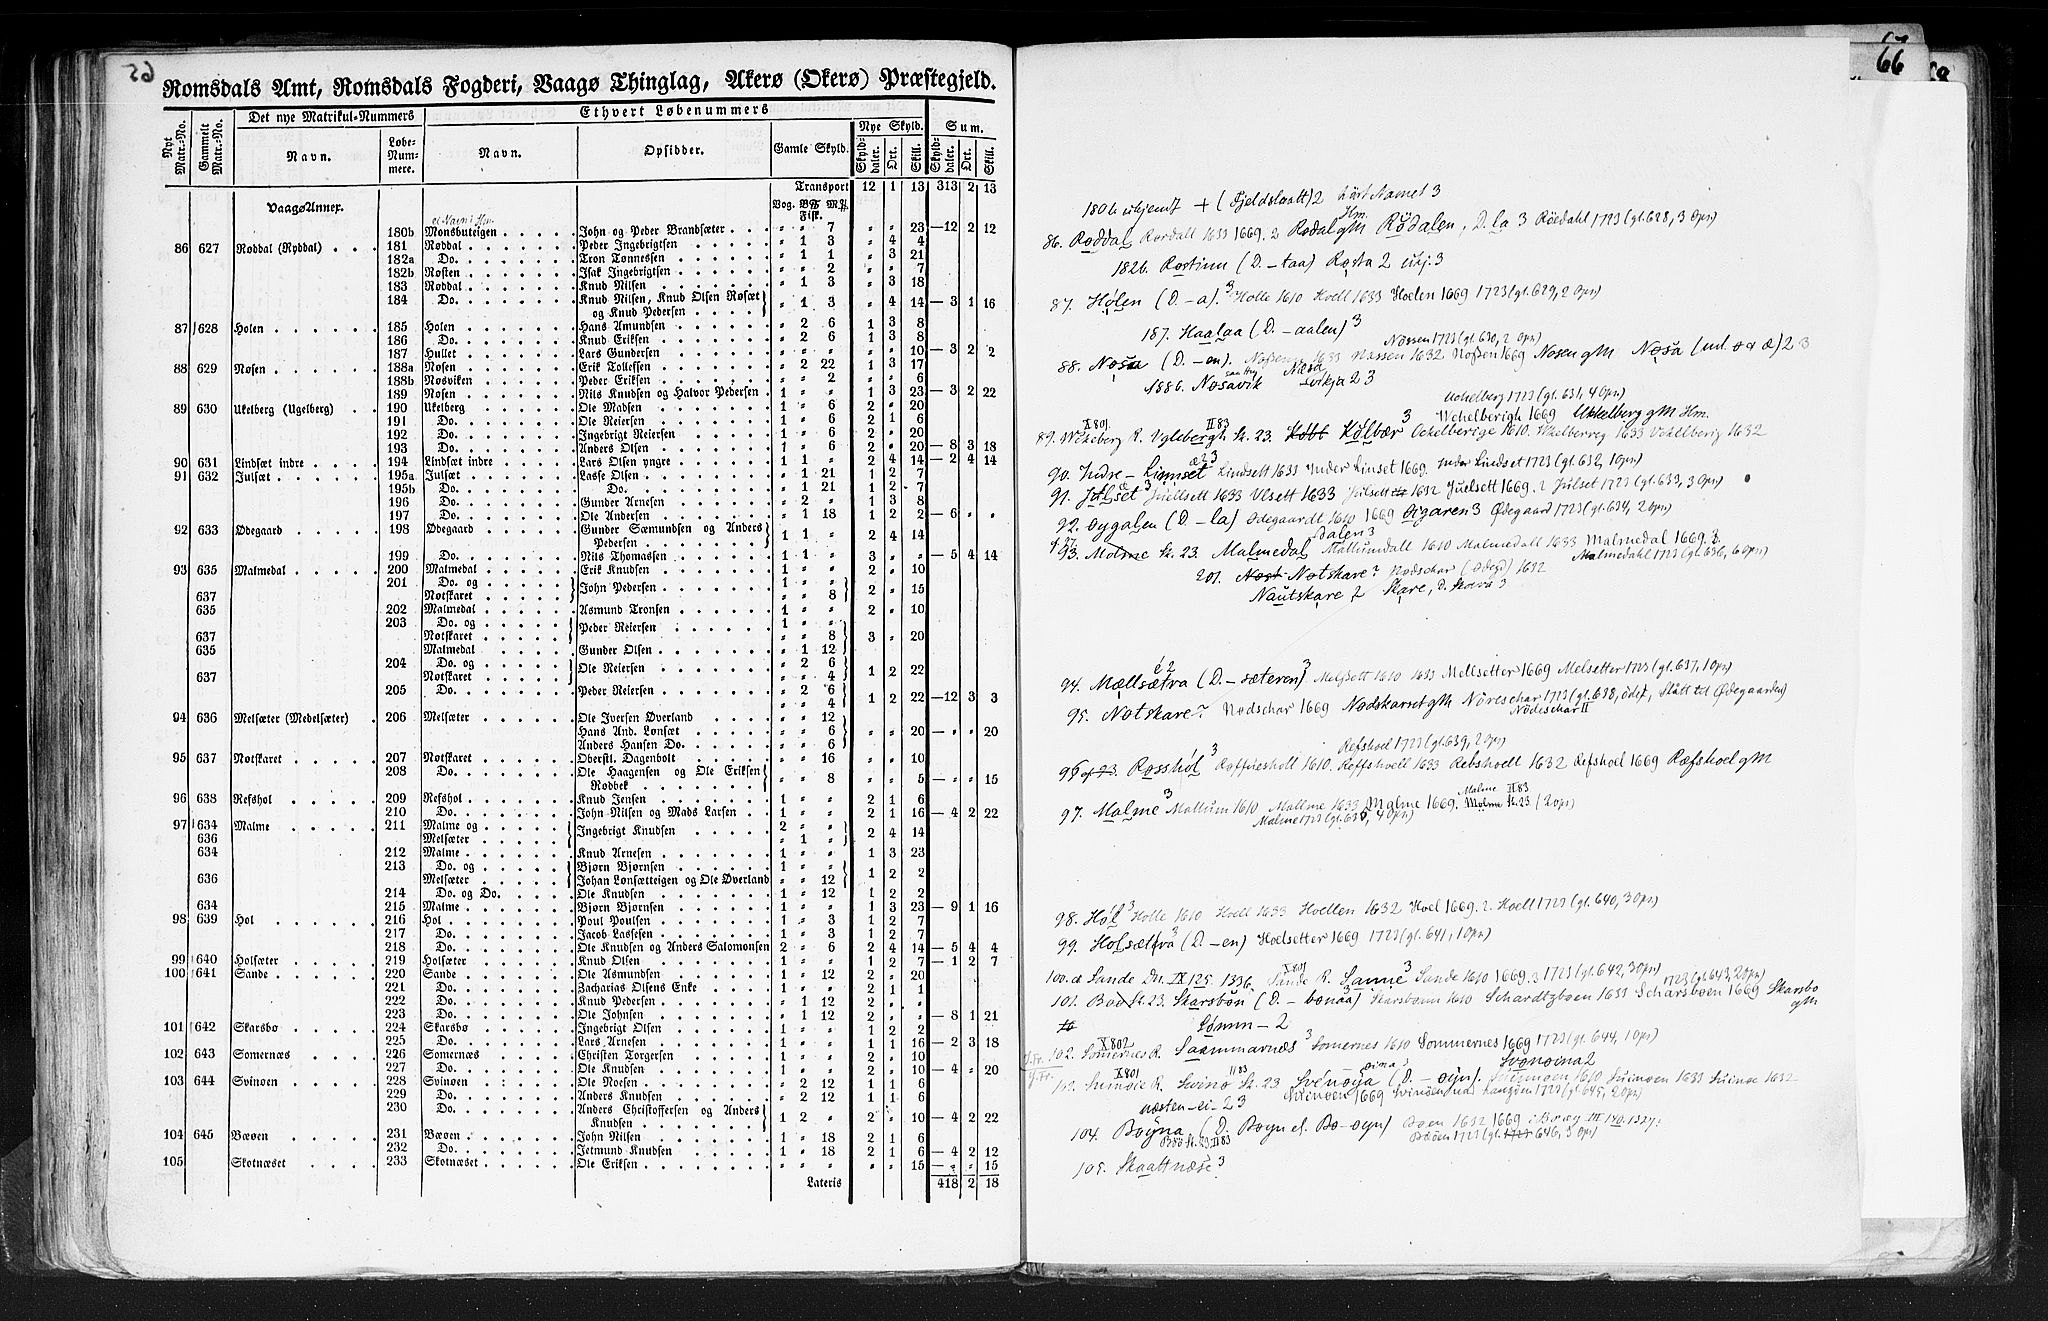 Romsdals Amt, Romsdals Fogderi, Vaagø Thinglag, Akerø (Okerø) Præstegjeld.
Nyt Matr.-No. Gammelt Matr.-No. Det nye Matrikul-Nummers Ethvert Løbenummers
Navn. Løbe-Nummere. Navn. Opsidder. Gamle Skyld. Nye Skyld. Sum.
Skylddaler. Ort. Skill. Skylddaler. Ort. Skill.
Transport 12 1 13 313 2 13
Vaagø Annex. Vog. BF Fisk. M℔
180b Monsbuteigen John og Peder Brandsæter 〃 〃 7 〃 〃 23 —12 2 12
86 627 Røddal (Ryddal) 181 Røddal Peder Ingebrigtsen 〃 1 3 〃 4 4
182a Do. Tron Tønnessen 〃 1 1 〃 3 21
182b Rosten Isak Ingebrigtsen 〃 〃 2 〃 〃 7
183 Røddal Knud Nilsen 〃 1 3 〃 3 18
184 Do. Knud Nilsen, Knud Olsen Røsæt og Knud Pedersen 〃 1 3 〃 4 14 — 3 1 16
87 628 Holen 185 Holen Hans Amundsen 〃 2 6 1 3 8
186 Do. Knud Eriksen 〃 2 6 1 3 8
187 Hullet Lars Gundersen 〃 〃 〃 〃 〃 10 — 3 2 2
88 629 Nosen 188a Nosen Erik Tollefsen 〃 2 22 1 3 17
188b Nosviken Peder Eriksen 〃 〃 2 〃 〃 6
189 Nosen Nils Knudsen og Halvor Pedersen 〃 〃 〃 1 3 23 — 3 2 22
89 630 Ukelberg (Ugelberg) 190 Ukelberg Ole Madsen 1 〃 6 2 〃 20
191 Do. Ole Reiersen 1 〃 6 2 1 6
192 Do. Ingebrigt Reiersen 1 〃 6 2 〃 20
193 Do. Anders Olsen 1 〃 6 2 〃 20 — 8 3 18
90 631 Lindsæt indre 194 Lindsæt indre Lars Olsen yngre 1 1 〃 2 4 14 — 2 4 14
91 632 Julsæt 195a Julsæt Lasse Olsen 〃 1 21 1 2 7
195b Do. Do. 〃 1 21 1 2 7
196 Do. Gunder Arnesen 〃 2 〃 1 3 8
197 Do. Ole Andersen 〃 1 18 1 2 2 — 6 〃 〃
92 633 Ødegaard 198 Ødegaard Gunder Sæmundsen og Anders Pedersen 1 1 〃 2 4 14
199 Do. Nils Thomassen 1 1 〃 3 〃 〃 — 5 4 14
93 635 Malmedal 200 Malmedal Erik Knudsen 1 〃 〃 2 〃 10
201 Do. og John Pedersen 1 〃 〃 2 〃 15
637 Notskaret 〃 〃 8
635 202 Malmedal Asmund Tronsen 1 〃 〃 2 〃 10
203 Do. og Peder Reiersen 1 〃 〃
637 Notskaret 〃 〃 8 3 〃 20
635 Malmedal Gunder Olsen 〃 1 12
204 Do. og Ole Reiersen 〃 2 6 1 2 22
637 Notskaret 〃 〃 4
205 Do. Peder Reiersen 〃 2 6 1 2 22 —12 3 3
〃 〃 4
94 636 Melsæter (Medelsæter) 206 Melsæter Ole Iversen Øverland 〃 〃 12
Hans And. Lønsæt 〃 〃 6 〃 〃 20 — 〃 〃 20
Anders Hansen Do. 〃 〃 6
95 637 Notskaret 207 Notskaret Oberstl. Dagenbolt 〃 〃 16 〃 〃 10
208 Do. Ole Haagensen og Ole Eriksen Røddek 〃 〃 8 〃 〃 5 — 〃 〃 15
96 638 Refshol 209 Refshol Knud Jensen 1 〃 〃 2 1 6
210 Do. John Nilsen og Mads Larsen 1 〃 〃 2 1 16 — 4 2 22
97 634 Malme 211 Malme og Ingebrigt Knudsen 2 〃 〃 2 4 14
636 Melsæter 〃 1 〃
634 212 Malme Knud Arnesen 〃 〃 〃 1 3 23
213 Do. og Bjørn Bjørnsen 1 〃 〃 1 2 2
636 Melsæter Johan Lønsætteigen og Ole Øverland 〃 〃 12
214 Do. og Do. Ole Knudsen 1 〃 12 1 2 2
634 215 Malme Bjørn Bjørnsen 1 〃 〃 1 3 23 — 9 1 16
98 639 Hol 216 Hol Poul Poulsen 1 〃 3 1 2 7
217 Do. Jacob Lassesen 1 〃 3 1 2 7
218 Do. Ole Knudsen og Anders Salomonsen 2 〃 6 2 4 14 — 5 4 4
99 640 Holsæter 219 Holsæter Knud Olsen 1 〃 〃 1 2 7 — 1 2 7
100 641 Sande 220 Sande Ole Asmundsen 1 〃 12 2 〃 20
221 Do. Zacharias Olsens Enke 1 〃 〃 2 1 1
222 Do. Knud Pedersen 〃 1 12 2 〃 〃
223 Do. Ole Johnsen 〃 1 12 2 〃 〃 — 8 1 21
101 642 Skarsbø 224 Skarsbø Ingebrigt Olsen 1 〃 〃 1 2 2
225 Do. Lars Arnesen 1 〃 〃 1 1 16 — 2 3 18
102 643 Somernæs 226 Somernæs Christen Torgersen 1 〃 〃 2 〃 10
227 Do. Ole Knudsen 1 〃 〃 2 〃 10 — 4 〃 20
103 644 Svinøen 228 Svinøen Ole Noesen 〃 2 12 1 1 6
229 Do. Anders Knudsen 〃 2 12 1 1 6
230 Do. Anders Christoffersen og Anders Knudsen 1 2 〃 2 〃 10 — 4 2 22
104 645 Bæøen 231 Bæøen John Nilsen 1 〃 18 2 1 6
232 Do. Jetmund Knudsen 1 〃 18 2 1 6 — 4 2 12
105 Skotnæset 233 Skotnæset Ole Eriksen 〃 〃 〃 〃 〃 15 — 〃 〃 15
Lateris 418 2 18
66
180b ukjendt + (Fjeldslaatt) 2
86. Roddal Rordall 1633 1669. 2 Rødal gM Rødalen, D. la 3 Røedahl 1723 (gl. 628, 3 Opn)
182b. Rostinn (D. – taa) Rosta 2 ukj. 3
87. Hólen (D. – a). 3 Holle 1610 Hoell 1633 Hoelen 1669 1723 (gl. 629, 2 Opn)
187. Haalaa (D. – aalen) 3
Nossen 1723 (gl. 630, 2 Opn)
88. Nosa (D. – en). 1633 Nossen 1632 Nossen 1669 Nosen gM Nosa
188b. Nosavik
Uchelberg 1723 (gl. 631, 4 Opn)
Wchelberigh 1669 Ukkelberg gM Hm.
89. Sk. 23. Kølbær 3 Ockelberige 1610. 1633 1632
90. Indre – Linnset Lindsett 1633 Inder Linset 1669. Inder Lindset 1723 (gl. 632, 1 Opn)
91. Jølset 3 Juellsett 1633 Ulsett 1633 Julsett 1632 Juelsett 1669. 2 Julset 1723 (gl. 633, 3 Opn)
92. Øygalen (D. – la) Ødegaardt 1610 1669 Øigaren 3 Ødegaard 1723 (gl. 634, 2 Opn)
93. Malme Sk. 23. Malmedal Mallumdall 1610 Malmedall 1633 Malmedal 1669. 3.
Malmedahl 1723 (gl. 636, 6 Opn)
201. Notskare? Nodschar (ødeg) 1632
Nautskare 2 Skare, D. Skara 3
94. Mællsætra (D. – sæteren) 3 Melsett 1610 1633 Mellsetter 1669 Melsetter 1723 (gl. 637, 1 Opn)
95. Notskare? Nodschar 1669 Nodskarset gM Nøreschar 1723 (gl. 638, øde, Slått til Ødegaarden)
Nødeschar II
Refshoel 1723 (gl. 639, 2 Opn)
96. Rosshól 3 1610. Reffshoell 1633 Rebshoell 1632 Refshoel 1669 Ræfshoel gM
97. Malme 3 Mallum 1610 Mallme 1633 Malme 1669. Malme Sk. 23. (2 Opn)
Malme 1723 (gl. 635, 4 Opn)
98. Hól 3 Holle 1610 Hoell 1633 Hoellen 1632 Hoel 1669. 2. Hoell 1723 (gl. 640, 3 Opn)
99. Holsætra 3 (D. – en) Hoelsetter 1669 1723 (gl. 641, 1 Opn)
100. a Sande Dn. IX 125. 1336. Sande R. Sanne 3 Sande 1610 1669. 3 1723 (gl. 642, 3 Opn)
101. Sk. 23. Skarsbøn (D. – bønaa) 1610 1633 Scharsbøen 1669 Skarsbo gM
Sømm – 2
102. Somernes R. Saammarnæs 3 Somernes 1610 Sommernes 1669 1723 (gl. 644, 1 Opn)
103. R. Svinø Sk. 23 Svénøya (D. – øyn). 1610 Suinøen 1633 Suinøe 1632
næsten – ei – 2 3 Svinøen 1669 1723 (gl. 645, 2 Opn)
104. Bøyna. (D. Bøyn el. Bø-øyn) Boen 1632 1669
Bøøen 1723 (gl. 646, 3 Opn)
105. Skaattnæse 3